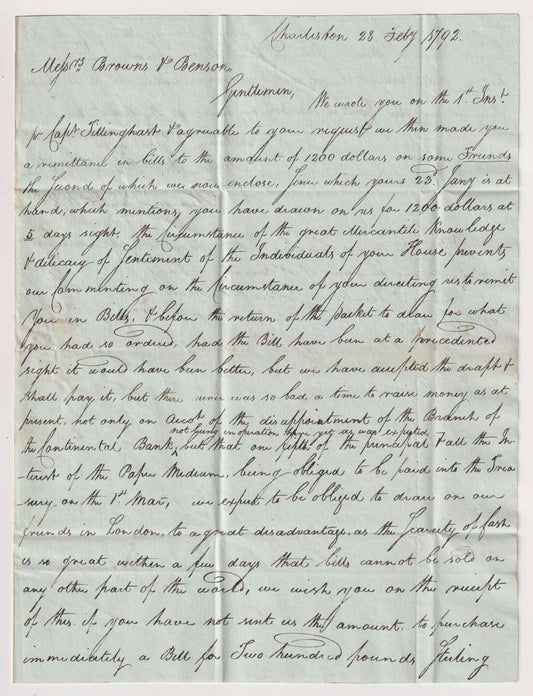 Charleston 28 Feby 1792.
Messrs Browns & Benson,
Gentlemen,
We wrote you on the 1st Inst.
pr Capt Tillinghast & agreeable to your request we then made you
a remittance in bills to the amount of 1200 dollars on some Friends
the second of which we now enclose, since which yours 23d Jany is at
hand, which mentions, you have drawn on us for 1200 dollars at
5 days sight, the Circumstance of the great Mercantile Knowledge
& delicacy of Sentement of the Individuals of your House prevents
our Commenting on the Circumstance of your directing us to remit
you in Bills, & before the return of the packet to draw for what
you had so ordered, had the Bill have been at a precedented
sight it would have been better, but we have accepted the draft &
shall pay it, but there never was so bad a time to raise money as at
present, not only on Accot of the disappointment of the Branch of
not going in operation here yet as was expected
the Continental Bank, but that one fifth of the principal & all the In-
terest of the Paper Medium, being obliged to be paid into the Trea
sury on the 1st Mar, we expect to be obliged to draw on our
friends in London, to a great disadvantage, as the Scarcity of Cash
is so great within a few days that bills cannot be sold on
any other part of the world, we wish you on the receipt
of this if you have not sent us the amount, to purchase
immediately a Bill for Two hundred pounds Sterling